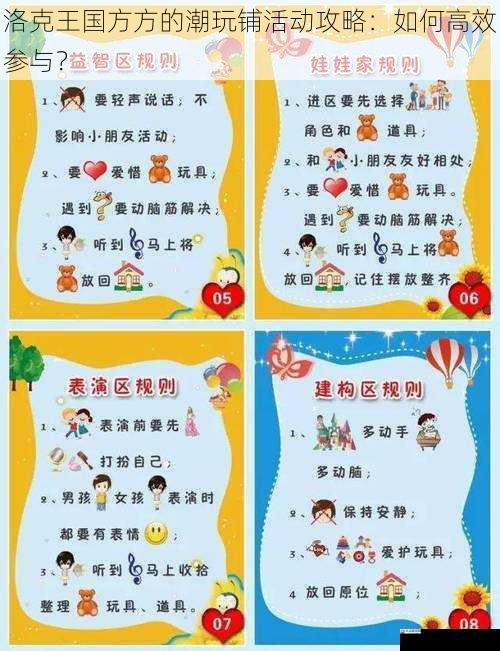 洛克王国方方的潮玩铺活动攻略：如何高效
参与？
益智区规则
1、要轻声说话，不
影响小朋友活动；
2、要爱惜玩具，
遇到要动脑筋解决；
3、听到马上将
放回。
05
娃娃家规则
1、进区要先选择
角色和道具；
2、和小朋友友好相处；
3、要爱惜玩具。
遇到要动脑筋解决；
4、听到马上将
放回，记住摆放整齐
06
表演区规则
1、表演前要先
打扮自己；
2、男孩女孩表演时
都要有表情；
3、听到马上收拾
整理玩具、道具。
07
建构区规则
1、多动手
多动脑；
2、保持安静；
3、爱护玩具；
4 放回原位；
08